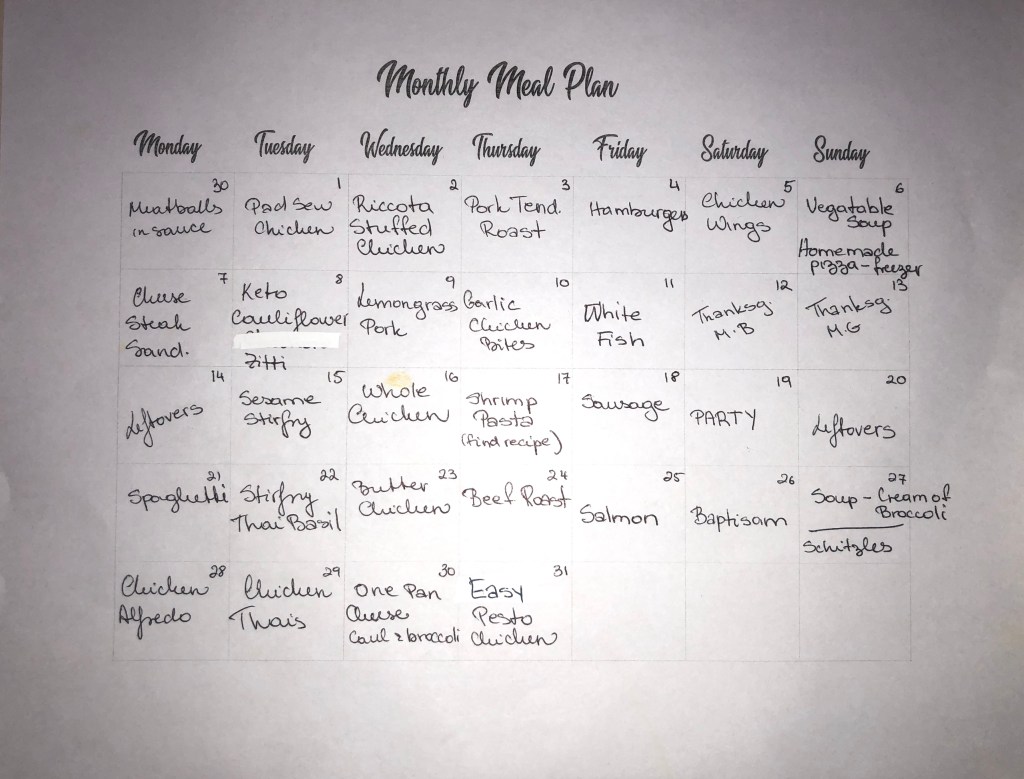 Monthly Meal Plan
Monday Tuesday Wednesday Thursday Friday Saturday Sunday
30
Meatballs
in sauce
1
Pad Sew
Chicken
2
Riccota
Stuffed
Chicken
3
Pork Tend.
Roast
4
Hamburgers
5
Chicken
Wings
6
Vegatable
Soup
Homemade
pizza - freezer
7
Cheese
Steak
Sand.
8
Keto
Cauliflower
Zitti
9
Lemongrass
Pork
10
Garlic
Chicken
Bites
11
White
Fish
12
Thanksg
M.B
13
Thanksg
M.G
14
Leftovers
15
Sesame
Stirfry
16
Whole
Chicken
17
Shrimp
Pasta
(find recipe)
18
Sausage
19
PARTY
20
Leftovers
21
Spaghetti
22
Stirfry
Thai Basil
23
Butter
Chicken
24
Beef Roast
25
Salmon
26
Baptisam
27
Soup - Cream of
Broccoli
Schitzles
28
Chicken
Alfredo
29
Chicken
Thais
30
One Pan
Cheese
Caul & broccoli
31
Easy
Pesto
Chicken